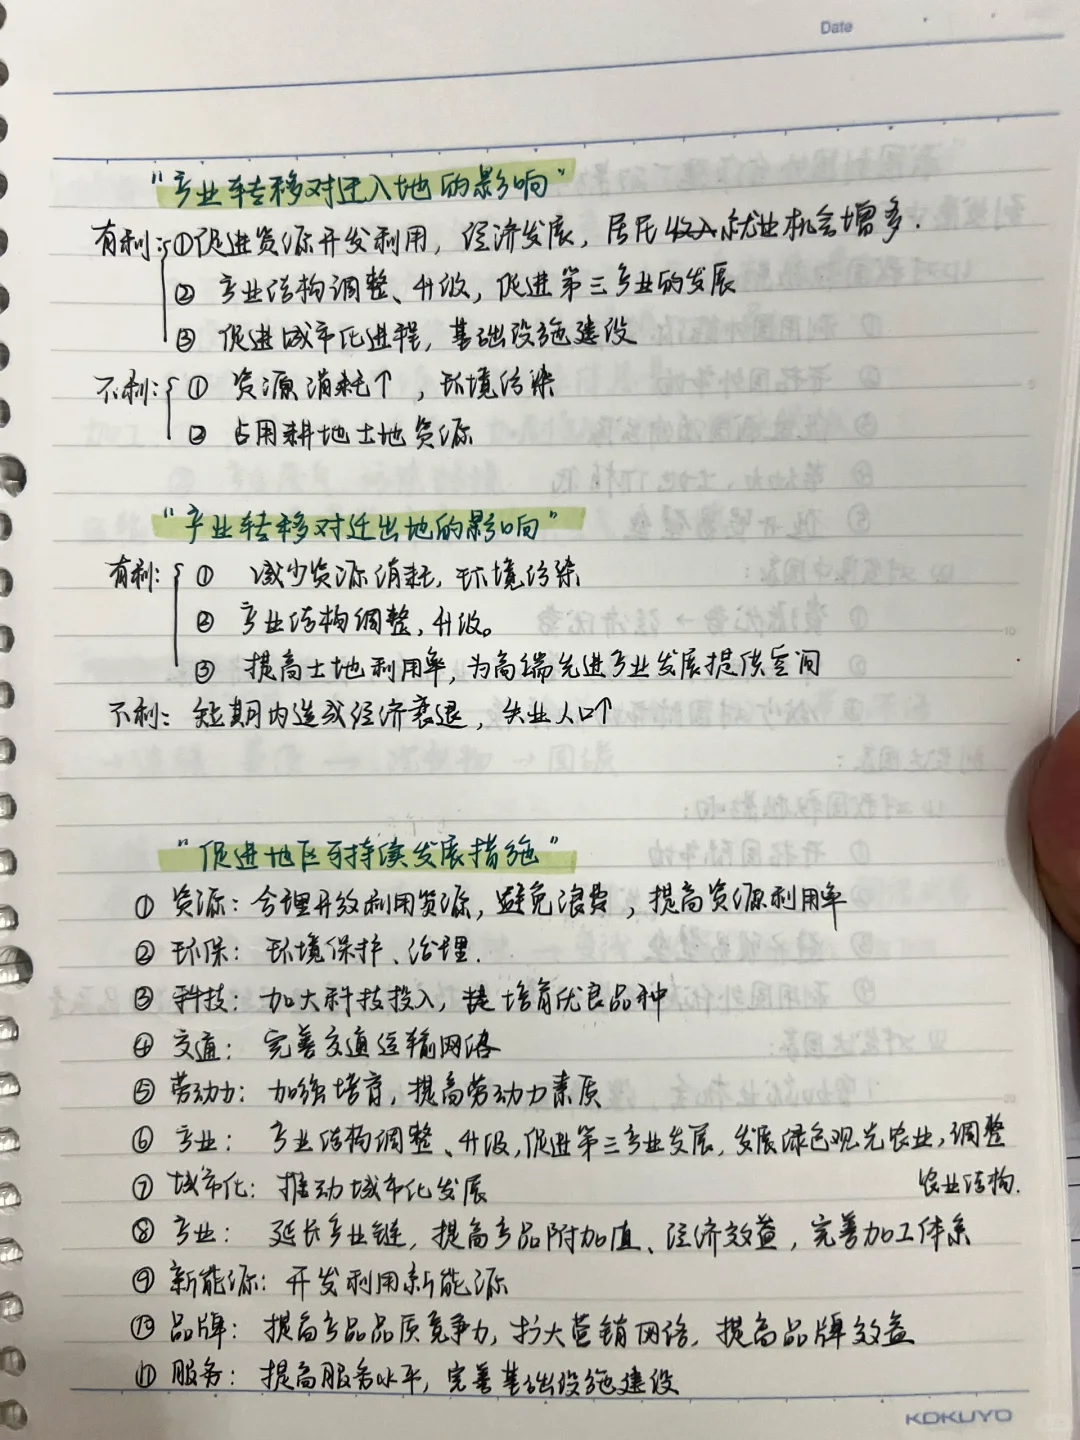 Date
"产业转移对迁入地的影响"
有利:①促进资源开发利用,经济发展,居民收入就业机会增多.
② 产业结构调整、升级,促进第三产业的发展
③ 促进城市化进程,基础设施建设
不利:① 资源消耗↑,环境污染
② 占用耕地土地资源
"产业转移对迁出地的影响"
有利:① 减少资源消耗,环境污染
② 产业结构调整,升级。
③ 提高土地利用率,为高端先进产业发展提供空间
不利:短期内造成经济衰退,失业人口↑
"促进地区可持续发展措施"
① 资源:合理开发利用资源,避免浪费,提高资源利用率
② 环保:环境保护、治理.
③ 科技:加大科技投入,培育优良品种
④ 交通:完善交通运输网络
⑤ 劳动力:加强培育,提高劳动力素质
⑥ 产业:产业结构调整、升级,促进第三产业发展,发展绿色观光农业,调整
农业结构.
⑦ 城市化:推动城市化发展
⑧ 产业:延长产业链,提高产品附加值、经济效益,完善加工体系
⑨ 新能源:开发利用新能源
⑩ 品牌:提高产品品质竞争力,扩大营销网络,提高品牌效益
⑪ 服务:提高服务水平,完善基础设施建设
KOKUYO